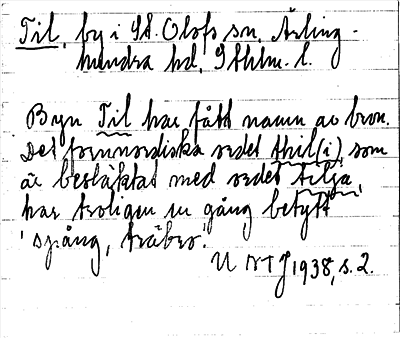 Til, by i St. Olofs sn, Ärling-
hundra hd, Sthlm. l.
Byn Til har fått namn av bron.
Det fornnordiska ordet thil(i), som
är besläktat med ordet tilja,
har troligen en gång betytt
'spång, träbro'.
U N T J 1938, s. 2.